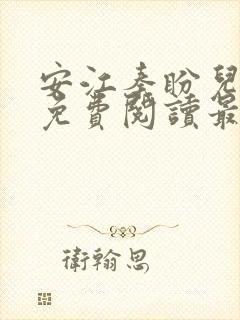 安江秦盼兒
免費閱讀最
衛翰思